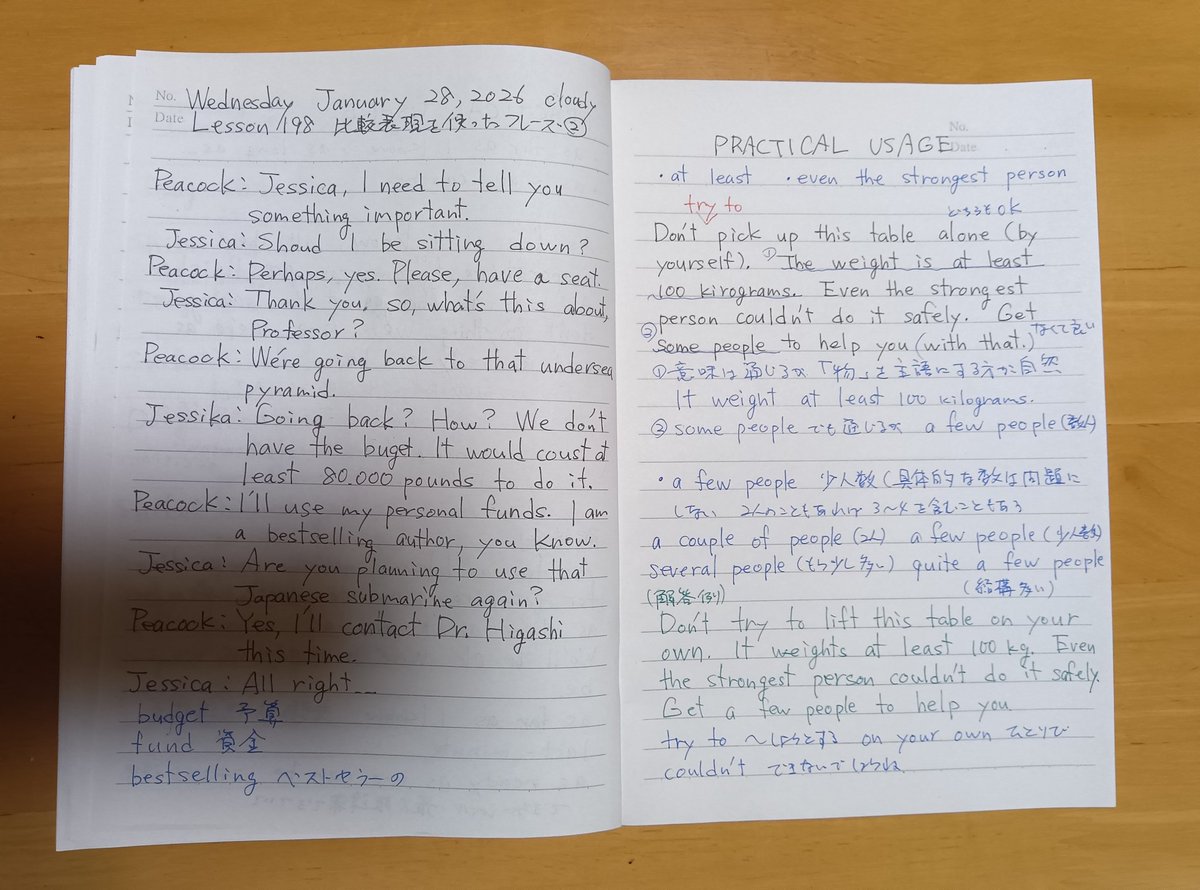 No. Wednesday January 28, 2026 cloudy
Date Lesson 198 比較表現を使ったフレーズ②
Peacock: Jessica, I need to tell you
something important.
Jessica: Shoud I be sitting down?
Peacock: Perhaps, yes. Please, have a seat.
Jessica: Thank you. so, what's this about,
Professor?
Peacock: We're going back to that undersea
pyramid.
Jessika: Going back? How? We don't
have the buget. It would coust at
least 80.000 pounds to do it.
Peacock: I'll use my personal funds. I am
a bestselling author, you know.
Jessica: Are you planning to use that
Japanese submarine again?
Peacock: Yes, I'll contact Dr. Higashi
this time.
Jessica: All right...
budget 予算
fund 資金
bestselling ベストセラーの
No.
PRACTICAL USAGE Date
・at least ・even the strongest person
try to どちらもOK
Don't pick up this table alone (by
yourself). ①The weight is at least
100 kirograms. Even the strongest
person couldn't do it safely. Get
②some people to help you (with that.) なくて良い
①意味は通じるが「物」を主語にする方が自然
It weight at least 100 kilograms.
②some people でも通じるが a few people (数人)
・a few people 少人数(具体的な数は問題に
しない 2人のこともあれば 3~4を含むこともある
a couple of people (2人) a few people (少人数)
several people (もう少し多い) quite a few people
(解答例) (結構多い)
Don't try to lift this table on your
own. It weights at least 100 kg. Even
the strongest person couldn't do it safely.
Get a few people to help you
try to ~しようとする on your own ひとりで
couldn't できないでしょうね